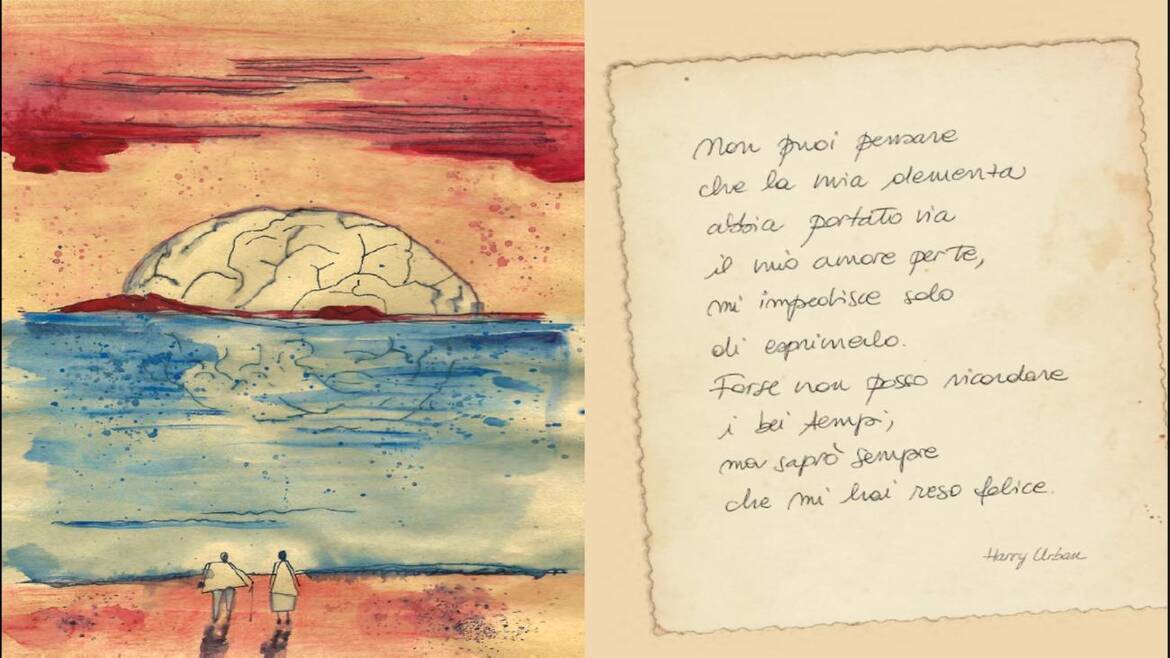 Non puoi pensare
che la mia demenza
abbia portato via
il mio amore per te,
mi impedisce solo
di esprimerlo.
Forse non posso ricordare
i bei tempi,
ma saprò sempre
che mi hai reso felice.
Harry Urban